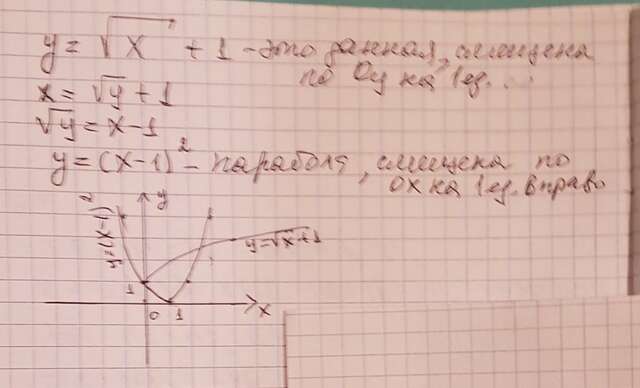 y = √x + 1 - это данная, смещена
по Oy на 1ед...
x = √y + 1
√y = x - 1
y = (x-1)² - парабола, смещена по
OX на 1ед. вправо
y=(x-1)²
y
y=√x+1
1
0
1
x